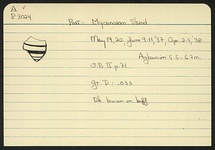 A
P 3024
Post-Mycenaean Sherd
May 19, 20, June 9-11, '37, Apr. 2-5, '38
5.5-6.7 m.
O.B. II p. 71
gr. D.: .033
Dk brown on buff